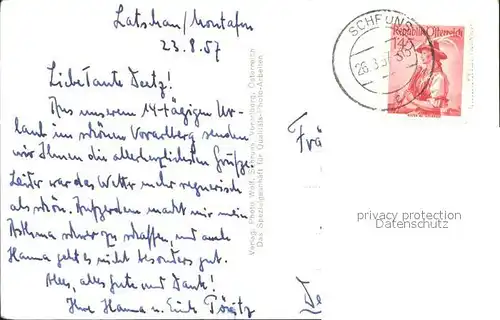 Latschau/Montafon
23.8.57
Liebe Tante Deetz!
Aus unserem 14-tägigen Ur-
laub im schönen Vorarlberg senden
wir Ihnen die allerherzlichsten Grüße.
Leider war das Wetter mehr regnerisch
als schön. Außerdem macht mir mein
Asthma schwer zu schaffen, und auch
Hanna geht es nicht besonders gut.
Alles, alles Gute und Dank!
Ihre Hanna u. Erich
Verlag: Photo Wolf, Schruns, Vorarlberg, Österreich
Das Spezialgeschäft für Qualitäts-Photo-Arbeiten
SCHRUNS
26.8.57
Republik Österreich
1.45
Frä
privacy protection
Datenschutz